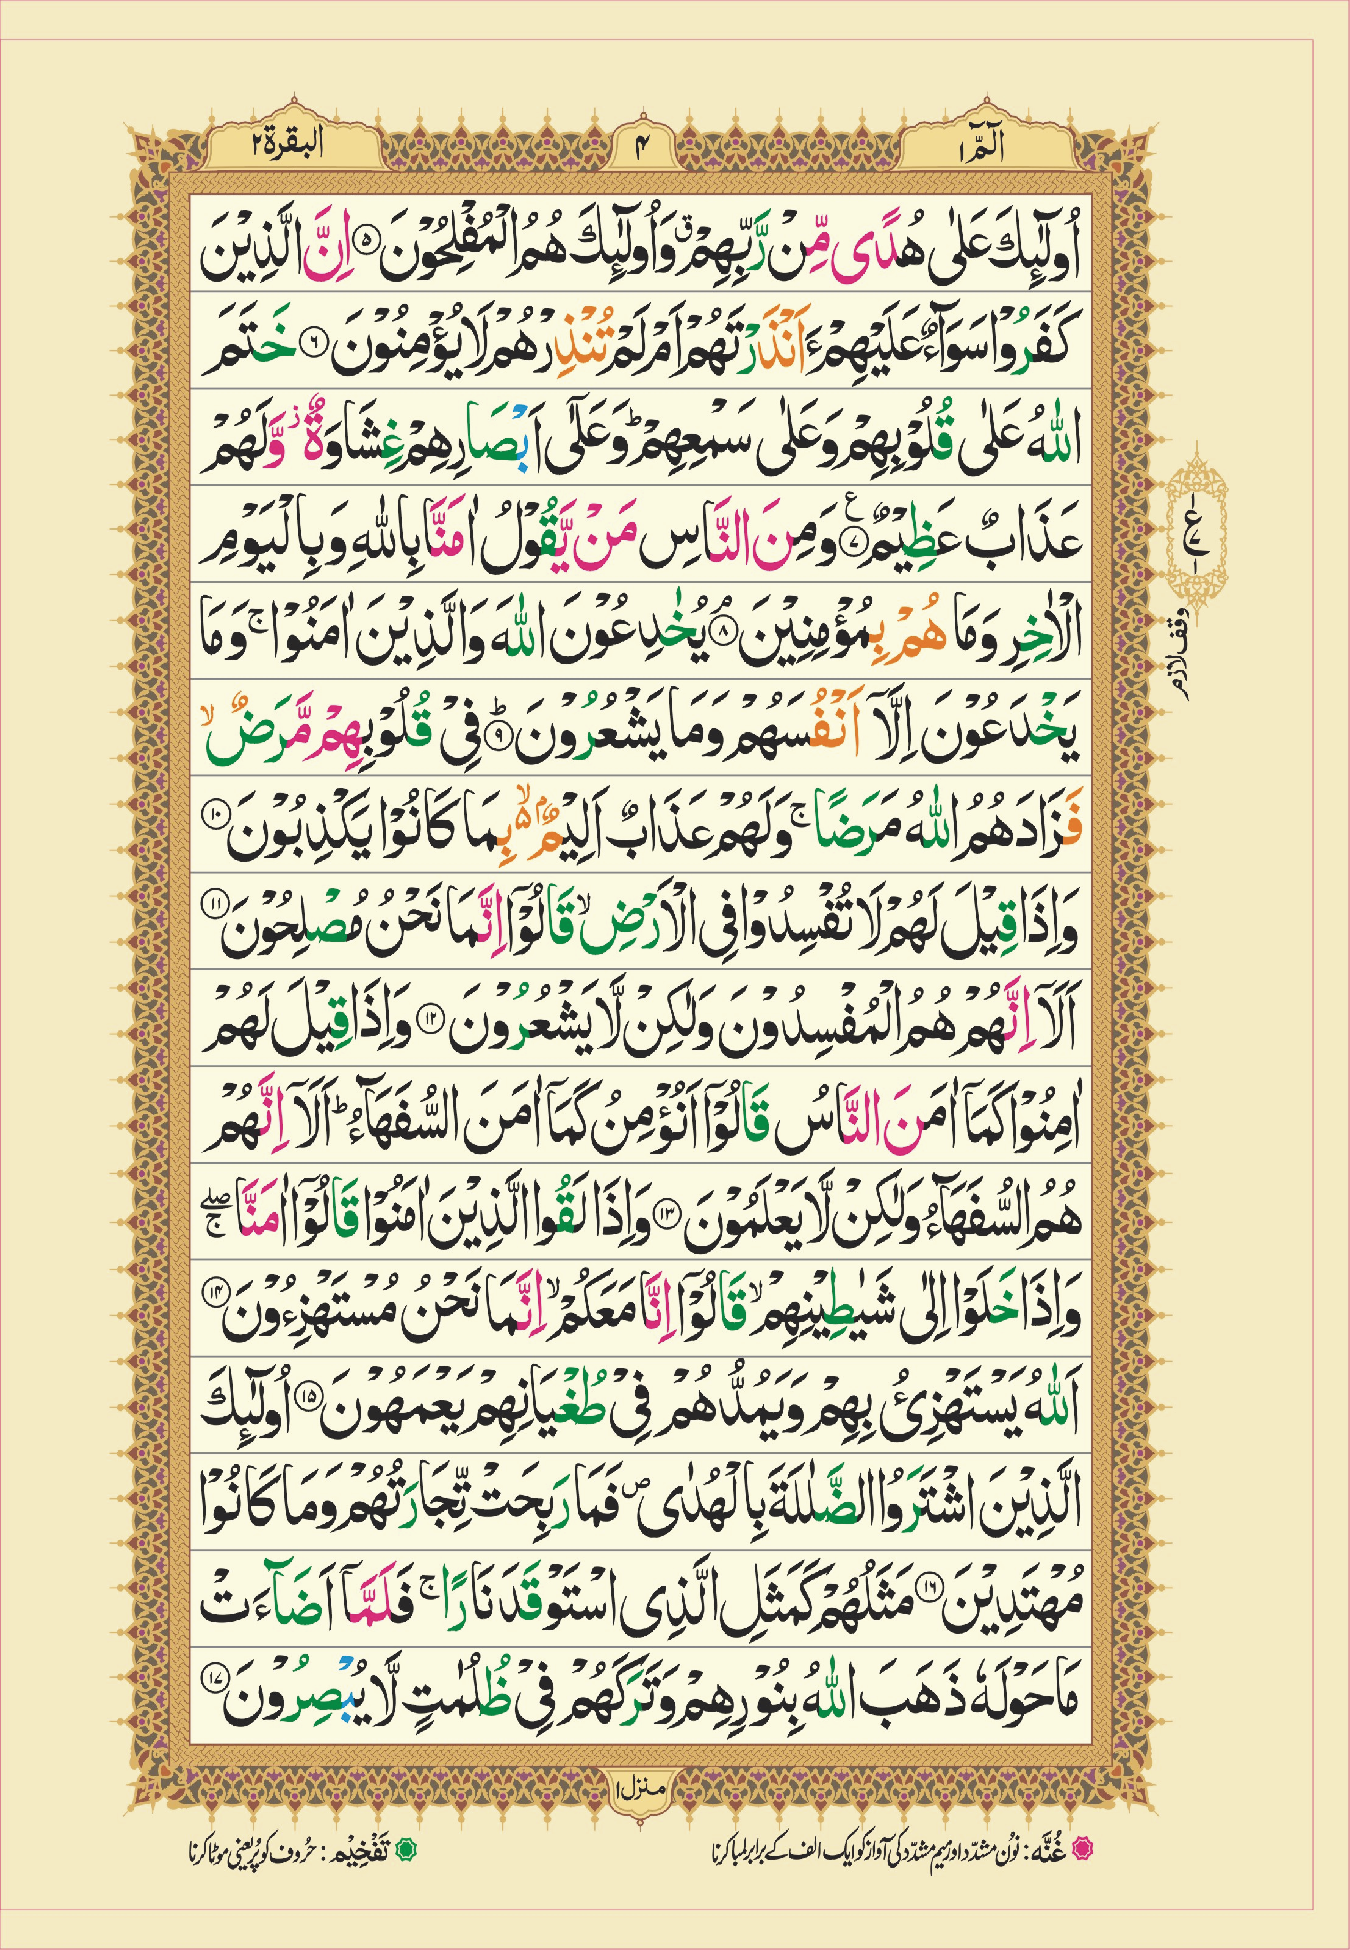 الٓمّٓ ١
۴
البقرة ٢
اُولٰٓئِكَ عَلٰى هُدًى مِّنْ رَّبِّهِمْ ۗ وَاُولٰٓئِكَ هُمُ الْمُفْلِحُوْنَ ۝۵ اِنَّ الَّذِيْنَ
كَفَرُوْا سَوَآءٌ عَلَيْهِمْ ءَاَنْذَرْتَهُمْ اَمْ لَمْ تُنْذِرْهُمْ لَا يُؤْمِنُوْنَ ۝۶ خَتَمَ
اللّٰهُ عَلٰى قُلُوْبِهِمْ وَعَلٰى سَمْعِهِمْ ؕ وَعَلٰٓى اَبْصَارِهِمْ غِشَاوَةٌ ز وَّلَهُمْ
عَذَابٌ عَظِيْمٌ ۝۷ ع وَمِنَ النَّاسِ مَنْ يَّقُوْلُ اٰمَنَّا بِاللّٰهِ وَبِالْيَوْمِ
الْاٰخِرِ وَمَا هُمْ بِمُؤْمِنِيْنَ ۝۸ۘ يُخٰدِعُوْنَ اللّٰهَ وَالَّذِيْنَ اٰمَنُوْا ۚ وَمَا
يَخْدَعُوْنَ اِلَّآ اَنْفُسَهُمْ وَمَا يَشْعُرُوْنَ ۝۹ؕ فِيْ قُلُوْبِهِمْ مَّرَضٌ ۙ
فَزَادَهُمُ اللّٰهُ مَرَضًا ۚ وَلَهُمْ عَذَابٌ اَلِيْمٌۢ ۙ۵ بِمَا كَانُوْا يَكْذِبُوْنَ ۝۱۰
وَاِذَا قِيْلَ لَهُمْ لَا تُفْسِدُوْا فِي الْاَرْضِ ۙ قَالُوْٓا اِنَّمَا نَحْنُ مُصْلِحُوْنَ ۝۱۱
اَلَآ اِنَّهُمْ هُمُ الْمُفْسِدُوْنَ وَلٰكِنْ لَّا يَشْعُرُوْنَ ۝۱۲ وَاِذَا قِيْلَ لَهُمْ
اٰمِنُوْا كَمَآ اٰمَنَ النَّاسُ قَالُوْٓا اَنُؤْمِنُ كَمَآ اٰمَنَ السُّفَهَآءُ ؕ اَلَآ اِنَّهُمْ
هُمُ السُّفَهَآءُ وَلٰكِنْ لَّا يَعْلَمُوْنَ ۝۱۳ وَاِذَا لَقُوا الَّذِيْنَ اٰمَنُوْا قَالُوْٓا اٰمَنَّا ۖۚ
وَاِذَا خَلَوْا اِلٰى شَيٰطِيْنِهِمْ ۙ قَالُوْٓا اِنَّا مَعَكُمْ ۙ اِنَّمَا نَحْنُ مُسْتَهْزِءُوْنَ ۝۱۴
اَللّٰهُ يَسْتَهْزِئُ بِهِمْ وَيَمُدُّهُمْ فِيْ طُغْيَانِهِمْ يَعْمَهُوْنَ ۝۱۵ اُولٰٓئِكَ
الَّذِيْنَ اشْتَرَوُا الضَّلٰلَةَ بِالْهُدٰى ص فَمَا رَبِحَتْ تِّجَارَتُهُمْ وَمَا كَانُوْا
مُهْتَدِيْنَ ۝۱۶ مَثَلُهُمْ كَمَثَلِ الَّذِى اسْتَوْقَدَ نَارًا ۚ فَلَمَّآ اَضَآءَتْ
مَا حَوْلَهٗ ذَهَبَ اللّٰهُ بِنُوْرِهِمْ وَتَرَكَهُمْ فِيْ ظُلُمٰتٍ لَّا يُبْصِرُوْنَ ۝۱۷
ع
وقف لازم
منزل ١
غُنَّه : نُوْن مشدّد اور مِيم مشدّد کی آواز کو ایک الف کے برابر لمبا کرنا
تَفْخِيْم : حُروف کو پُر یعنی موٹا کرنا